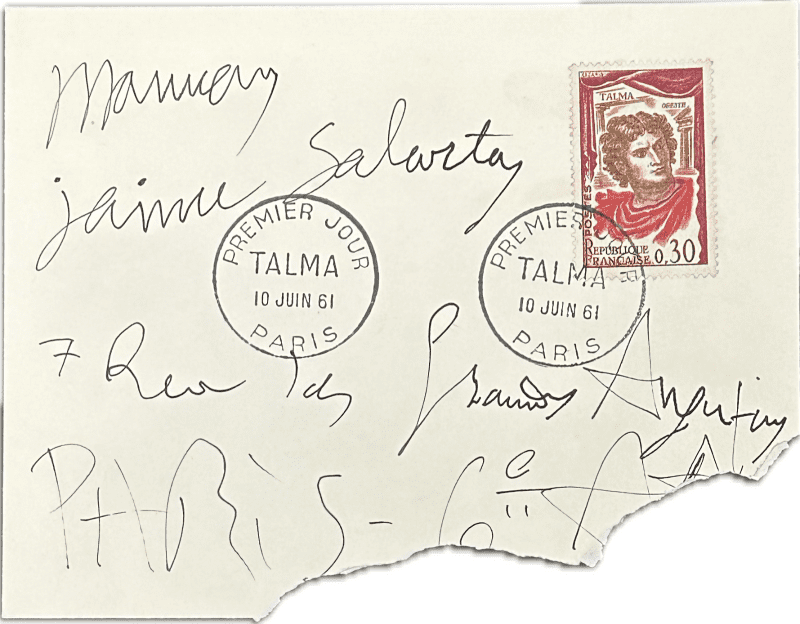 Monsieur
Jaime Sabartés
TALMA
ORESTE
POSTES
REPUBLIQUE
FRANÇAISE 0,30
PREMIER JOUR
TALMA
10 JUIN 61
PARIS
PREMIER JOUR
TALMA
10 JUIN 61
PARIS
7 Rue des Grands Augustins
PARIS - 6e